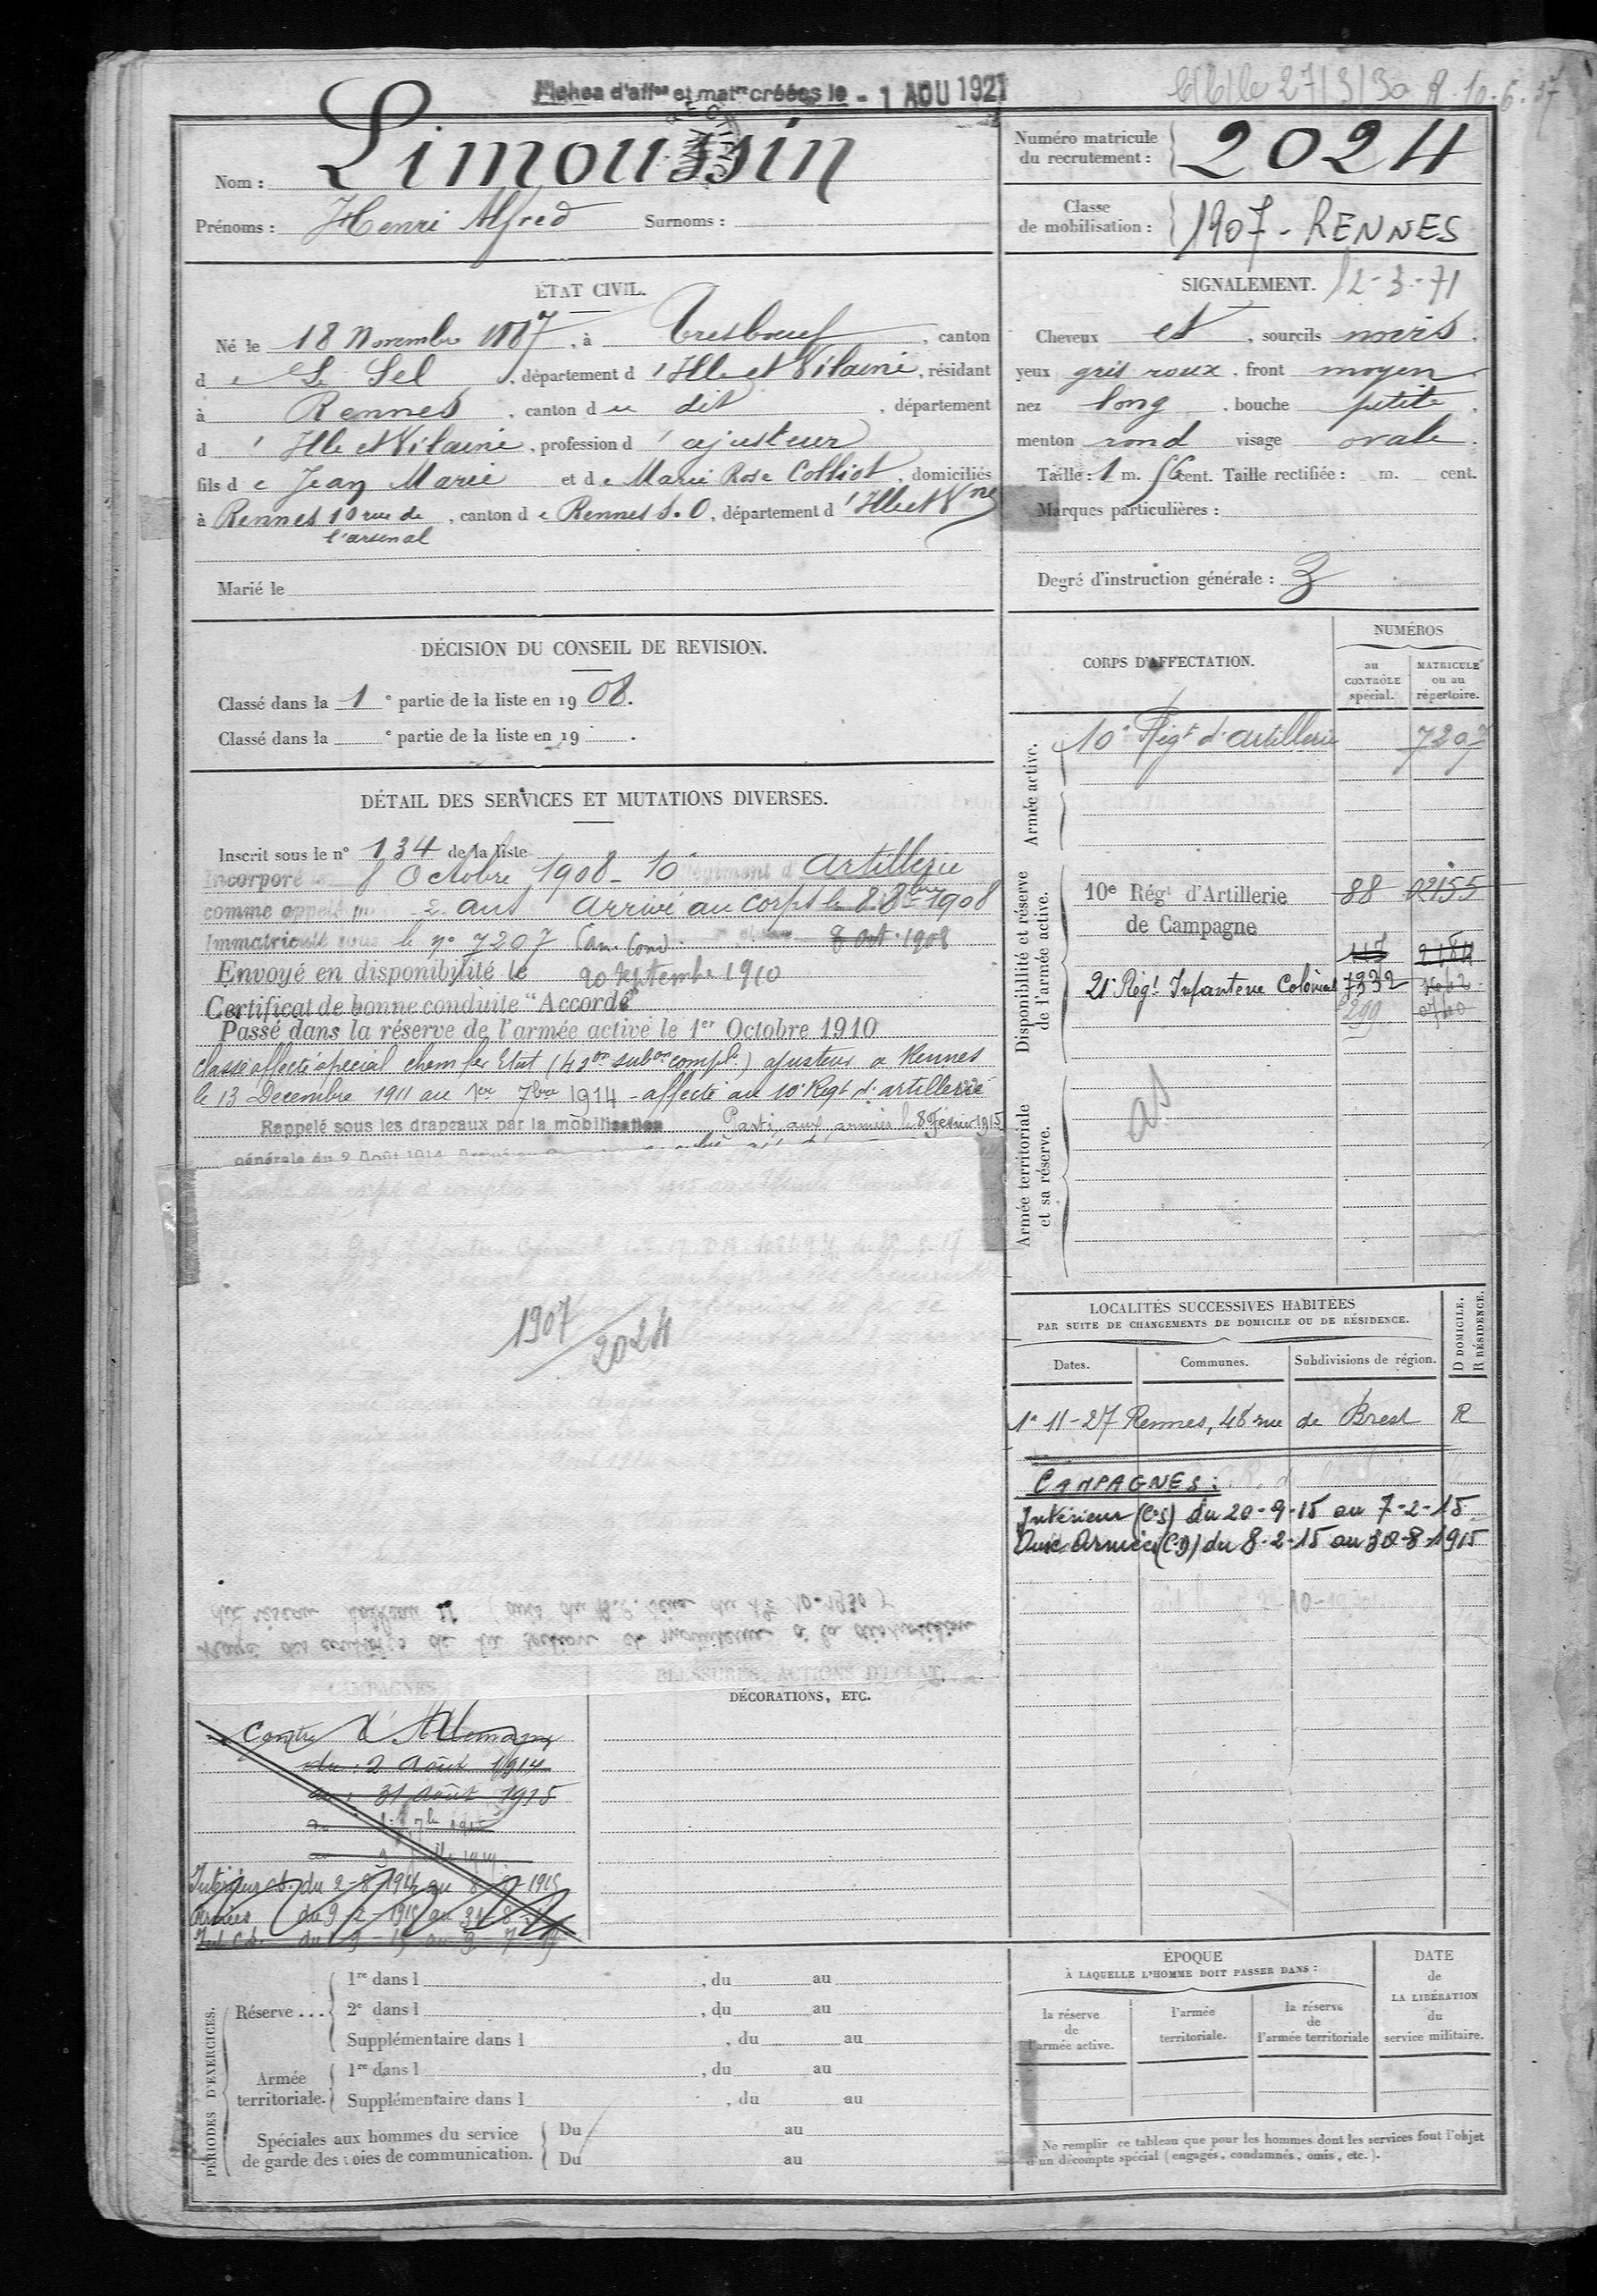 Fiches d'aff^on et mat^re créées le - 1 AOU 1927
27/3/30 R. 10.6.37
Nom : Limoussin
Prénoms : Henri Alfred Surnoms :
Numéro matricule
du recrutement : 2024
Classe
de mobilisation : 1907 - RENNES
ÉTAT CIVIL.
Né le 18 Novembre 1887, à Tresboeuf, canton
de Le Sel, département d'Ille et Vilaine, résidant
à Rennes, canton du dit, département
d'Ille et Vilaine, profession d'ajusteur
fils de Jean Marie et de Marie Rose Colliot, domiciliés
à Rennes 10 rue de l'arsenal, canton de Rennes S.O, département d'Ille et V^ne
Marié le
SIGNALEMENT. 12-3-71
Cheveux et, sourcils noirs.
yeux gris roux, front moyen
nez long, bouche petite,
menton rond visage ovale.
Taille : 1 m. 56 cent. Taille rectifiée : m. cent.
Marques particulières :
Degré d'instruction générale : 3
DÉCISION DU CONSEIL DE REVISION.
Classé dans la 1^e partie de la liste en 1908.
Classé dans la ^e partie de la liste en 19 .
DÉTAIL DES SERVICES ET MUTATIONS DIVERSES.
Inscrit sous le n° 134 de la liste
Incorporé le 8 Octobre 1908 - 10^e régiment d'Artillerie
comme appelé pour 2 ans Arrivé au corps le 8 8^bre 1908
Immatriculé sous le n° 7207 Can. Cond. 8 Oct. 1908
Envoyé en disponibilité le 20 septembre 1910
Certificat de bonne conduite "Accordé"
Passé dans la réserve de l'armée active le 1^er Octobre 1910
Classé affecté spécial chem fer Etat (42^on sub^on compl^re) ajusteur a Rennes
le 13 Decembre 1911 au 1^er 7^bre 1914 - affecté au 10^e Reg^t d'artillerie
Rappelé sous les drapeaux par la mobilisation Parti aux armées le 8 Février 1915
générale du 2 Août 1914
1907
2024
CORPS D'AFFECTATION.
NUMÉROS
au CONTRÔLE spécial.
MATRICULE ou au répertoire.
Armée active.
10^e Rég^t d'artillerie 7207
Disponibilité et réserve de l'armée active.
10^e Rég^t d'Artillerie 88 02155
de Campagne
117 2184
21^e Rég^t Infanterie Colonial 7332
299 0740
Armée territoriale et sa réserve.
as
LOCALITÉS SUCCESSIVES HABITÉES
PAR SUITE DE CHANGEMENTS DE DOMICILE OU DE RÉSIDENCE.
D DOMICILE.
R RÉSIDENCE.
Dates. Communes. Subdivisions de région.
1^e 11-27 Rennes, 48 rue de Brest R
CAMPAGNES :
Intérieur (CS) du 20-9-15 au 7-2-15
Aux Armées (CD) du 8-2-15 au 30-8-1915
CAMPAGNES
BLESSURES, ACTIONS D'ÉCLAT,
DÉCORATIONS, ETC.
Contre l'Allemagne
du 2 Août 1914
au 31 Août 1915
Intérieur cs. du 2-8-1914 au 8-2-1915
Armées du 9-2-1915 au 31-8-15
PÉRIODES D'EXERCICES.
Réserve ...
1^re dans l , du au
2^e dans l , du au
Supplémentaire dans l , du au
Armée territoriale.
1^re dans l , du au
Supplémentaire dans l , du au
Spéciales aux hommes du service
de garde des voies de communication.
Du au
Du au
ÉPOQUE
À LAQUELLE L'HOMME DOIT PASSER DANS :
la réserve de l'armée active.
l'armée territoriale.
la réserve de l'armée territoriale
DATE de LA LIBÉRATION du service militaire.
Ne remplir ce tableau que pour les hommes dont les services font l'objet
d'un décompte spécial (engagés, condamnés, omis, etc.).